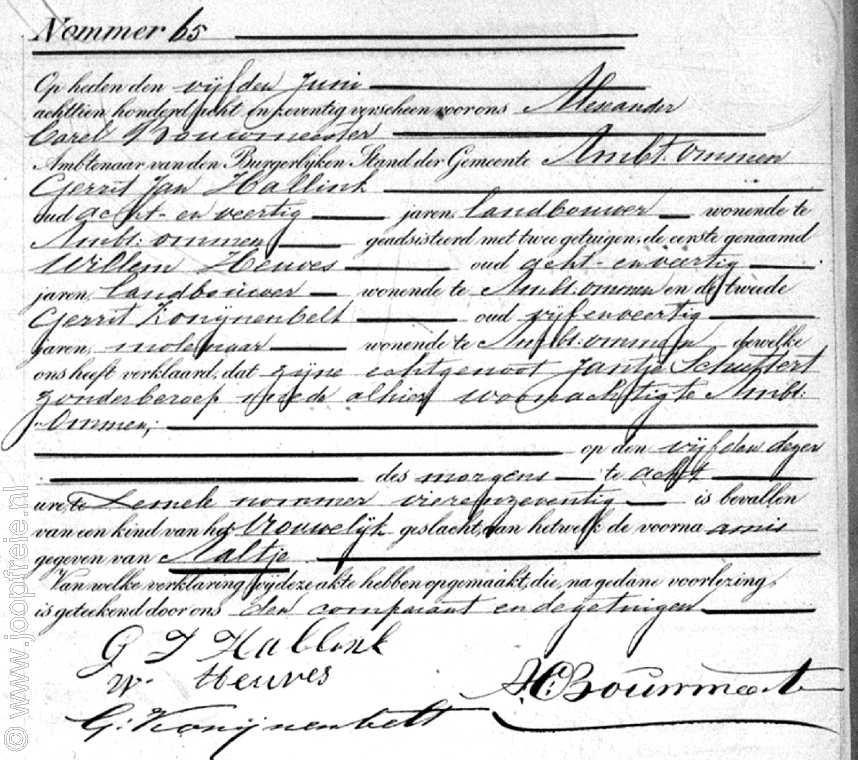 Nommer 65
Op heden den vijfden Juni
achttien honderd acht en zeventig verscheen voor ons Alexander
Carel Bouwmeester
Ambtenaar van den Burgerlijken Stand der Gemeente Ambt: Ommen
Gerrit Jan Hallink
oud acht- en veertig jaren, landbouwer wonende te
Ambt: Ommen geadsisteerd met twee getuigen, de eerste genaamd
Willem Heuves oud acht- en veertig
jaren, landbouwer wonende te Ambt: Ommen en de tweede
Gerrit Konijnenbelt oud vijf en veertig
jaren, molenaar wonende te Ambt: Ommen dewelke
ons heeft verklaard, dat zijne echtgenoot Jantje Schuttert
zonder beroep mede alhier woonachtig te Ambt:
Ommen;
op den vijfden dezer
des morgens te acht
ure, te Lemele nommer vier en zeventig is bevallen
van een kind van het vrouwelijk geslacht, aan hetwelk de voorna amis
gegeven van Aaltje
Van welke verklaring wij deze akte hebben opgemaakt, die, na gedane voorlezing
is geteekend door ons den comparant en de getuigen
G J Hallink
W. Heuves
A.C. Bouwmeester
G: Konijnenbelt
© www.joopfreie.nl